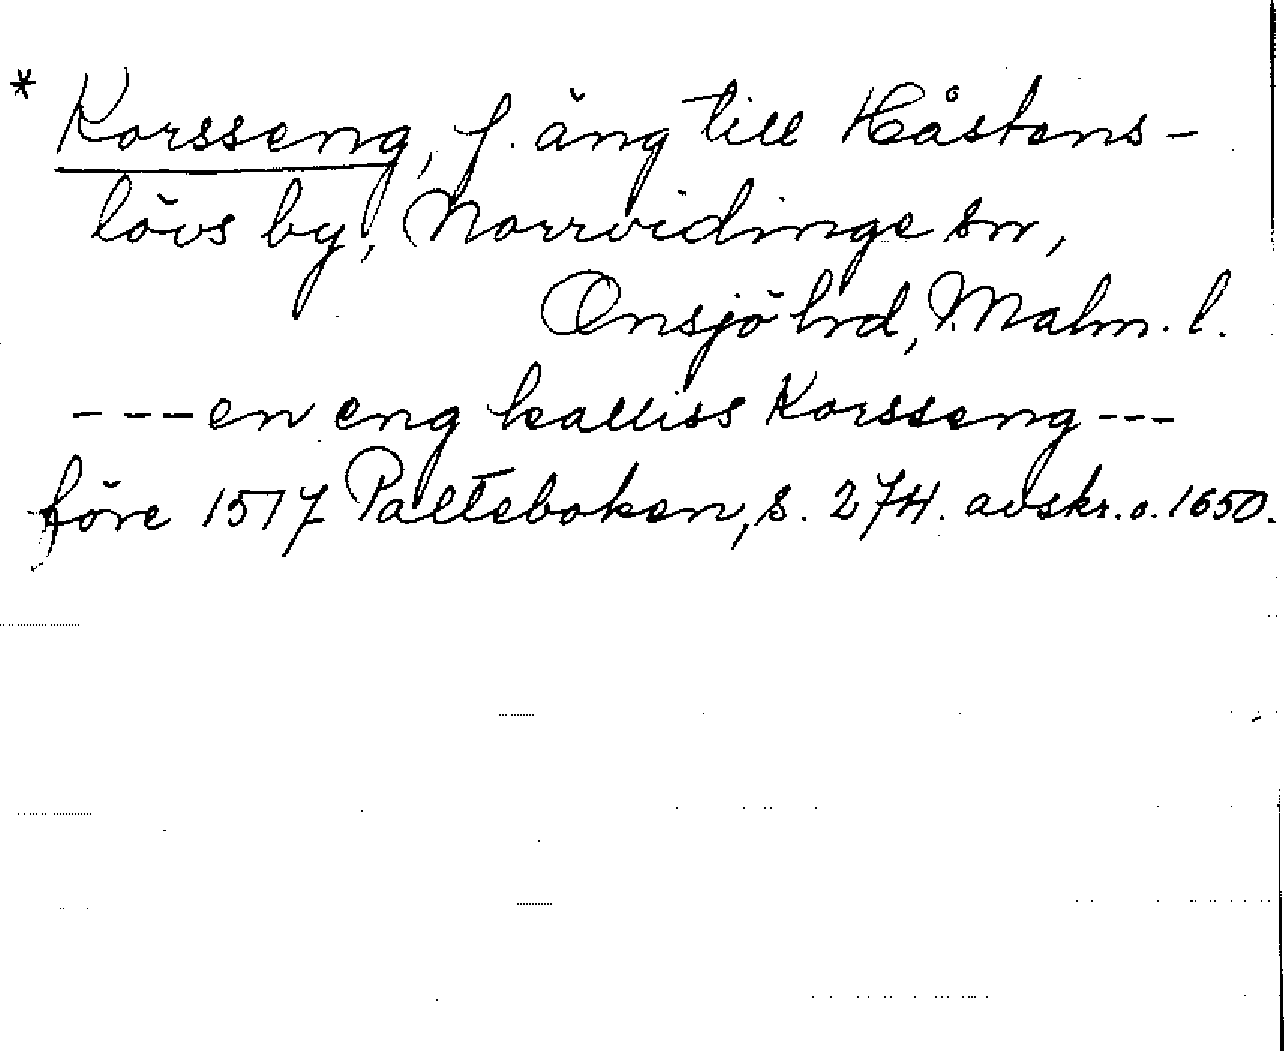 * Korsseng, f. äng till Håstens-
lövs by, Norrvidinge sn,
Onsjö hrd, Malm. l.
---en eng kalliss Korsseng---
före 1517 Palteboken, s. 274. avskr. o. 1650.